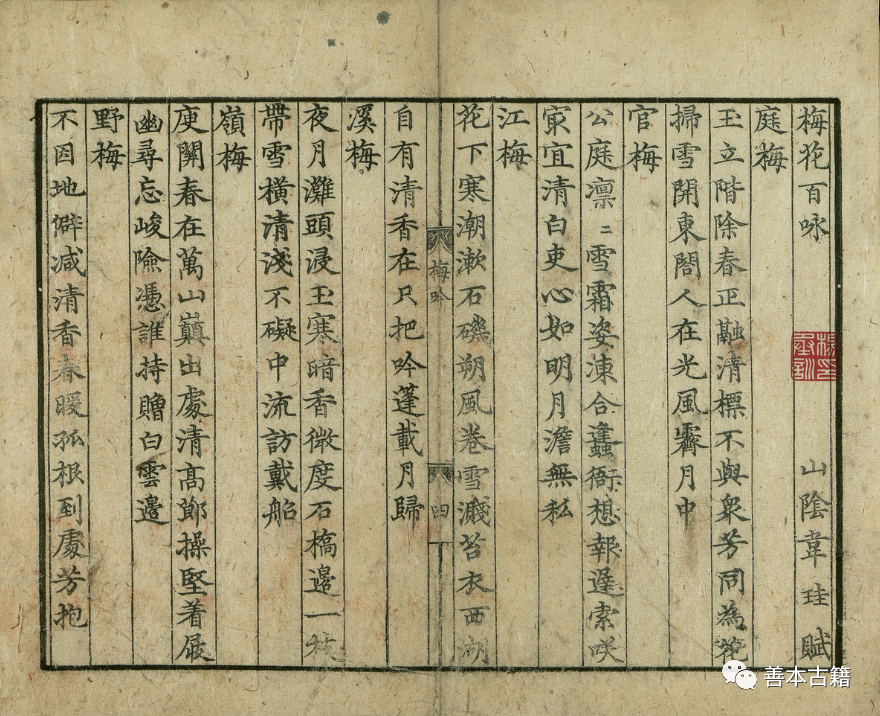 梅花百咏 山陰韋珪賦
庭梅
玉立階除春正融清標不與衆芳同為
掃雪開東閣人在光風霽月中
官梅
公庭凛〻雪霜姿凍合蠭衙想報遲索咲
冣宜清白吏心如明月澹無私
江梅
花下寒潮漱石磯朔風卷雪濺苔衣西湖
自有清香在只把吟蓬載月歸
梅吟 四
溪梅
夜月灘頭浸玉寒暗香微度石橋邊一枝
帶雪橫清淺不礙中流訪戴船
嶺梅
庾關春在萬山巔出處清高節操堅着屐
幽尋忘峻險憑誰持贈白雲邊
野梅
不因地僻减清香春暖孤根到處芳抱
善本古籍